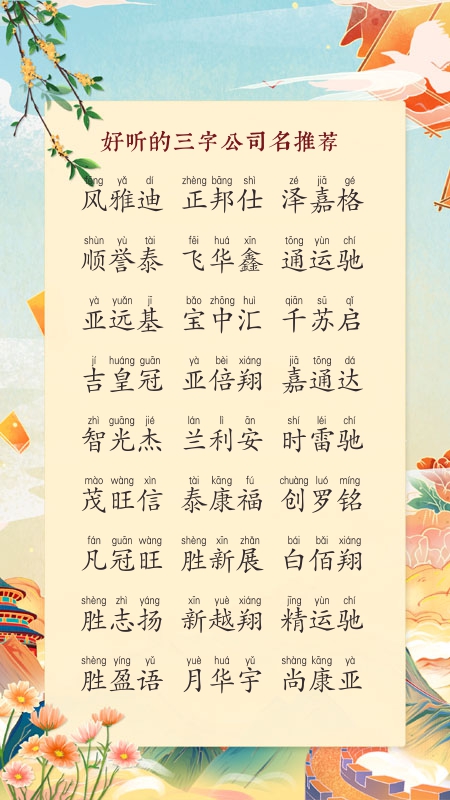 好听的三字公司名推荐
fēng yǎ dí zhèng bāng shì zé jiā gé
风雅迪 正邦仕 泽嘉格
shùn yù tài fēi huá xīn tōng yùn chí
顺誉泰 飞华鑫 通运驰
yà yuǎn jī bǎo zhōng huì qiān sū qǐ
亚远基 宝中汇 千苏启
jí huáng guān yà bèi xiáng jiā tōng dá
吉皇冠 亚倍翔 嘉通达
zhì guāng jié lán lì ān shí léi chí
智光杰 兰利安 时雷驰
mào wàng xìn tài kāng fú chuàng luó míng
茂旺信 泰康福 创罗铭
fán guān wàng shèng xīn zhǎn bái bǎi xiáng
凡冠旺 胜新展 白佰翔
shèng zhì yáng xīn yuè xiáng jīng yùn chí
胜志扬 新越翔 精运驰
shèng yíng yǔ yuè huá yǔ shàng kāng yà
胜盈语 月华宇 尚康亚